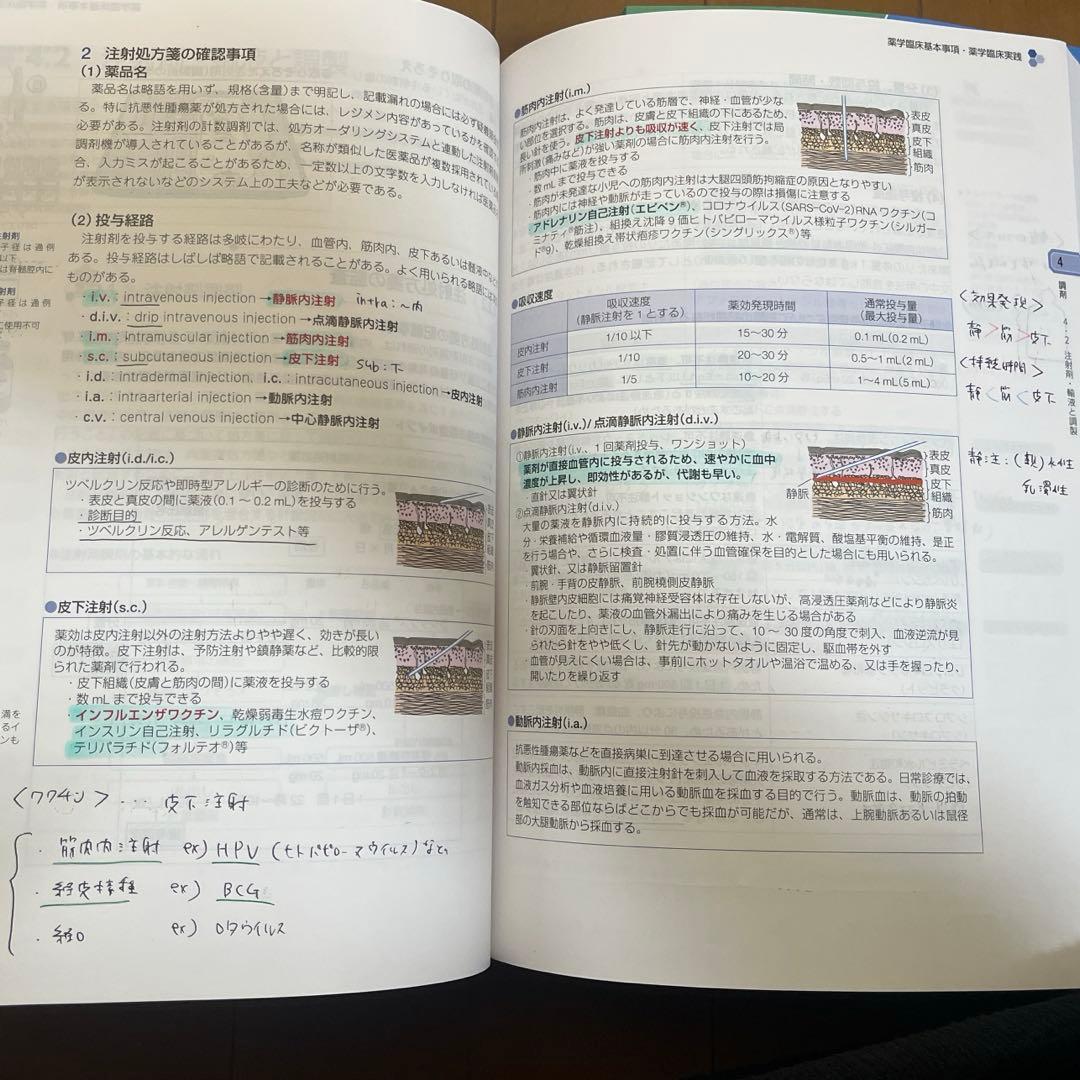 2 注射処方箋の確認事項
(1) 薬品名
薬品名は略語を用いず、規格(含量)まで明記し、記載漏れの場合には必ず疑義
る。特に抗悪性腫瘍薬が処方された場合には、レジメン内容があっているかを確
必要がある。注射剤の計数調剤では、処方オーダリングシステムと連動した注射薬
調剤機が導入されていることがあるが、名称が類似した医薬品が複数採用されてい
合、入力ミスが起こることがあるため、一定数以上の文字数を入力しなければ医薬
が表示されないなどのシステム上の工夫などが必要である。
(2) 投与経路
注射剤を投与する経路は多岐にわたり、血管内、筋肉内、皮下あるいは髄液中など
ある。投与経路はしばしば略語で記載されることがある。よく用いられる略語には
ものがある。
・i.v.:intravenous injection→静脈内注射 intra:~内
・d.i.v.:drip intravenous injection→点滴静脈内注射
・i.m.:intramuscular injection→筋肉内注射
・s.c.:subcutaneous injection→皮下注射 sub:下
・i.d.:intradermal injection、i.c.:intracutaneous injection→皮内注射
・i.a.:intraarterial injection→動脈内注射
・c.v.:central venous injection→中心静脈内注射
●皮内注射(i.d./i.c.)
ツベルクリン反応や即時型アレルギーの診断のために行う。
・表皮と真皮の間に薬液(0.1~0.2mL)を投与する
・診断目的
・ツベルクリン反応、アレルゲンテスト等
●皮下注射(s.c.)
薬効は皮内注射以外の注射方法よりやや遅く、効きが長い
のが特徴。皮下注射は、予防注射や鎮静薬など、比較的限
られた薬剤で行われる。
・皮下組織(皮膚と筋肉の間)に薬液を投与する
・数mLまで投与できる
・インフルエンザワクチン、乾燥弱毒生水痘ワクチン、
インスリン自己注射、リラグルチド(ビクトーザ®)、
テリパラチド(フォルテオ®)等
<ワクチン>… 皮下注射
・筋肉内注射 ex) HPV (ヒトパピローマウイルス)など
・経皮接種 ex) BCG
・経口 ex) ロタウイルス
注射剤
子径は過例
以下
は脊髄腔内に
射剤
子径は過例
に使用不可
満を
るイ
ンも
薬学臨床基本事項・薬学臨床実践
●筋肉内注射(i.m.)
筋肉内注射は、よく発達している筋層で、神経・血管が少な
い部位を選択する。筋肉は、皮膚と皮下組織の下にあるため、
長い針を使う。皮下注射よりも吸収が速く、皮下注射では局
所刺激(痛みなど)が強い薬剤の場合に筋肉内注射を行う。
・筋肉中に薬液を投与する
・数mLまで投与できる
・筋肉が未発達な小児への筋肉内注射は大腿四頭筋拘縮症の原因となりやすい
・筋肉内には神経や動脈が走っているので投与の際は損傷に注意する
アドレナリン自己注射(エピペン®)、コロナウイルス(SARS-CoV-2)RNAワクチン(コ
ミナティ®筋注)、組換え沈降9価ヒトパピローマウイルス様粒子ワクチン(シルガー
ド®9)、乾燥組換え帯状疱疹ワクチン(シングリックス®)等
表皮
真皮
皮下
組織
筋肉
●吸収速度
吸収速度 薬効発現時間 通常投与量
(静脈注射を1とする) (最大投与量)
皮内注射 1/10以下 15~30分 0.1mL(0.2mL)
皮下注射 1/10 20~30分 0.5~1mL(2mL)
筋肉内注射 1/5 10~20分 1~4mL(5mL)
●静脈内注射(i.v.)/点滴静脈内注射(d.i.v.)
①静脈内注射(i.v.、1回薬剤投与、ワンショット)
薬剤が直接血管内に投与されるため、速やかに血中
濃度が上昇し、即効性があるが、代謝も早い。
・直針又は翼状針
②点滴静脈内注射(d.i.v.)
大量の薬液を静脈内に持続的に投与する方法。水
分・栄養補給や循環血液量・膠質浸透圧の維持、水・電解質、酸塩基平衡の維持、是正
を行う場合や、さらに検査・処置に伴う血管確保を目的とした場合にも用いられる。
・翼状針、又は静脈留置針
・前腕・手背の皮静脈、前腕橈側皮静脈
・静脈壁内皮細胞には痛覚神経受容体は存在しないが、高浸透圧薬剤などにより静脈炎
を起こしたり、薬液の血管外漏出により痛みを生じる場合がある
・針の刃面を上向きにし、静脈走行に沿って、10~30度の角度で刺入、血液逆流が見
られたら針をやや低くし、針先が動かないように固定し、駆血帯を外す
・血管が見えにくい場合は、事前にホットタオルや温浴で温める、又は手を握ったり、
開いたりを繰り返す
静脈
表皮
真皮
皮下
組織
筋肉
●動脈内注射(i.a.)
抗悪性腫瘍薬などを直接病巣に到達させる場合に用いられる。
動脈内採血は、動脈内に直接注射針を刺入して血液を採取する方法である。日常診療では、
血液ガス分析や血液培養に用いる動脈血を採血する目的で行う。動脈血は、動脈の拍動
を触知できる部位ならばどこからでも採血が可能だが、通常は、上腕動脈あるいは鼠径
部の大腿動脈から採血する。
4
調剤
4・2 注射剤・輸液と調製
<効果発現>
静>筋>皮下
<持続時間>
静<筋<皮下
静注:(親)水性
乳濁性